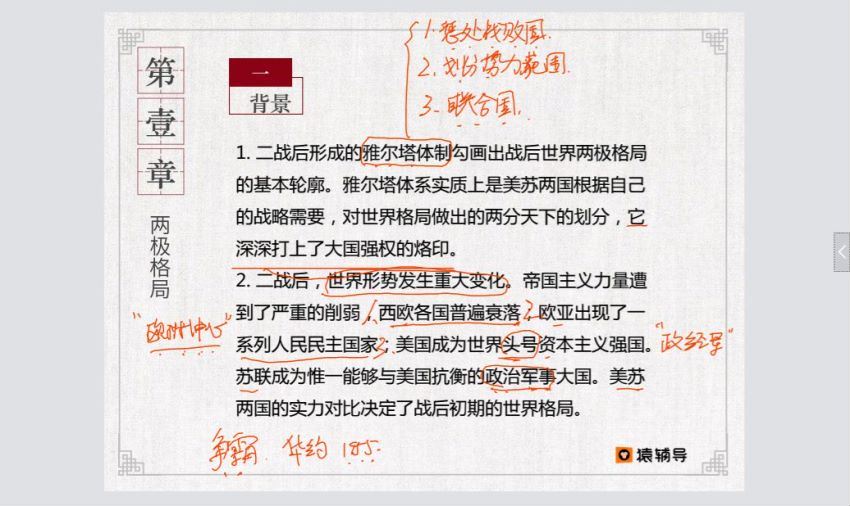 第壹章
两极格局
一
背景
1.惩处战败国.
2.划分势力范围.
3.联合国.
1. 二战后形成的雅尔塔体制勾画出战后世界两极格局
的基本轮廓。雅尔塔体系实质上是美苏两国根据自己
的战略需要，对世界格局做出的两分天下的划分，它
深深打上了大国强权的烙印。
2. 二战后，世界形势发生重大变化。帝国主义力量遭
到了严重的削弱，西欧各国普遍衰落；欧亚出现了一
系列人民民主国家；美国成为世界头号资本主义强国。
苏联成为惟一能够与美国抗衡的政治军事大国。美苏
两国的实力对比决定了战后初期的世界格局。
"欧洲中心"
"政经军"
争霸. 华约
猿辅导